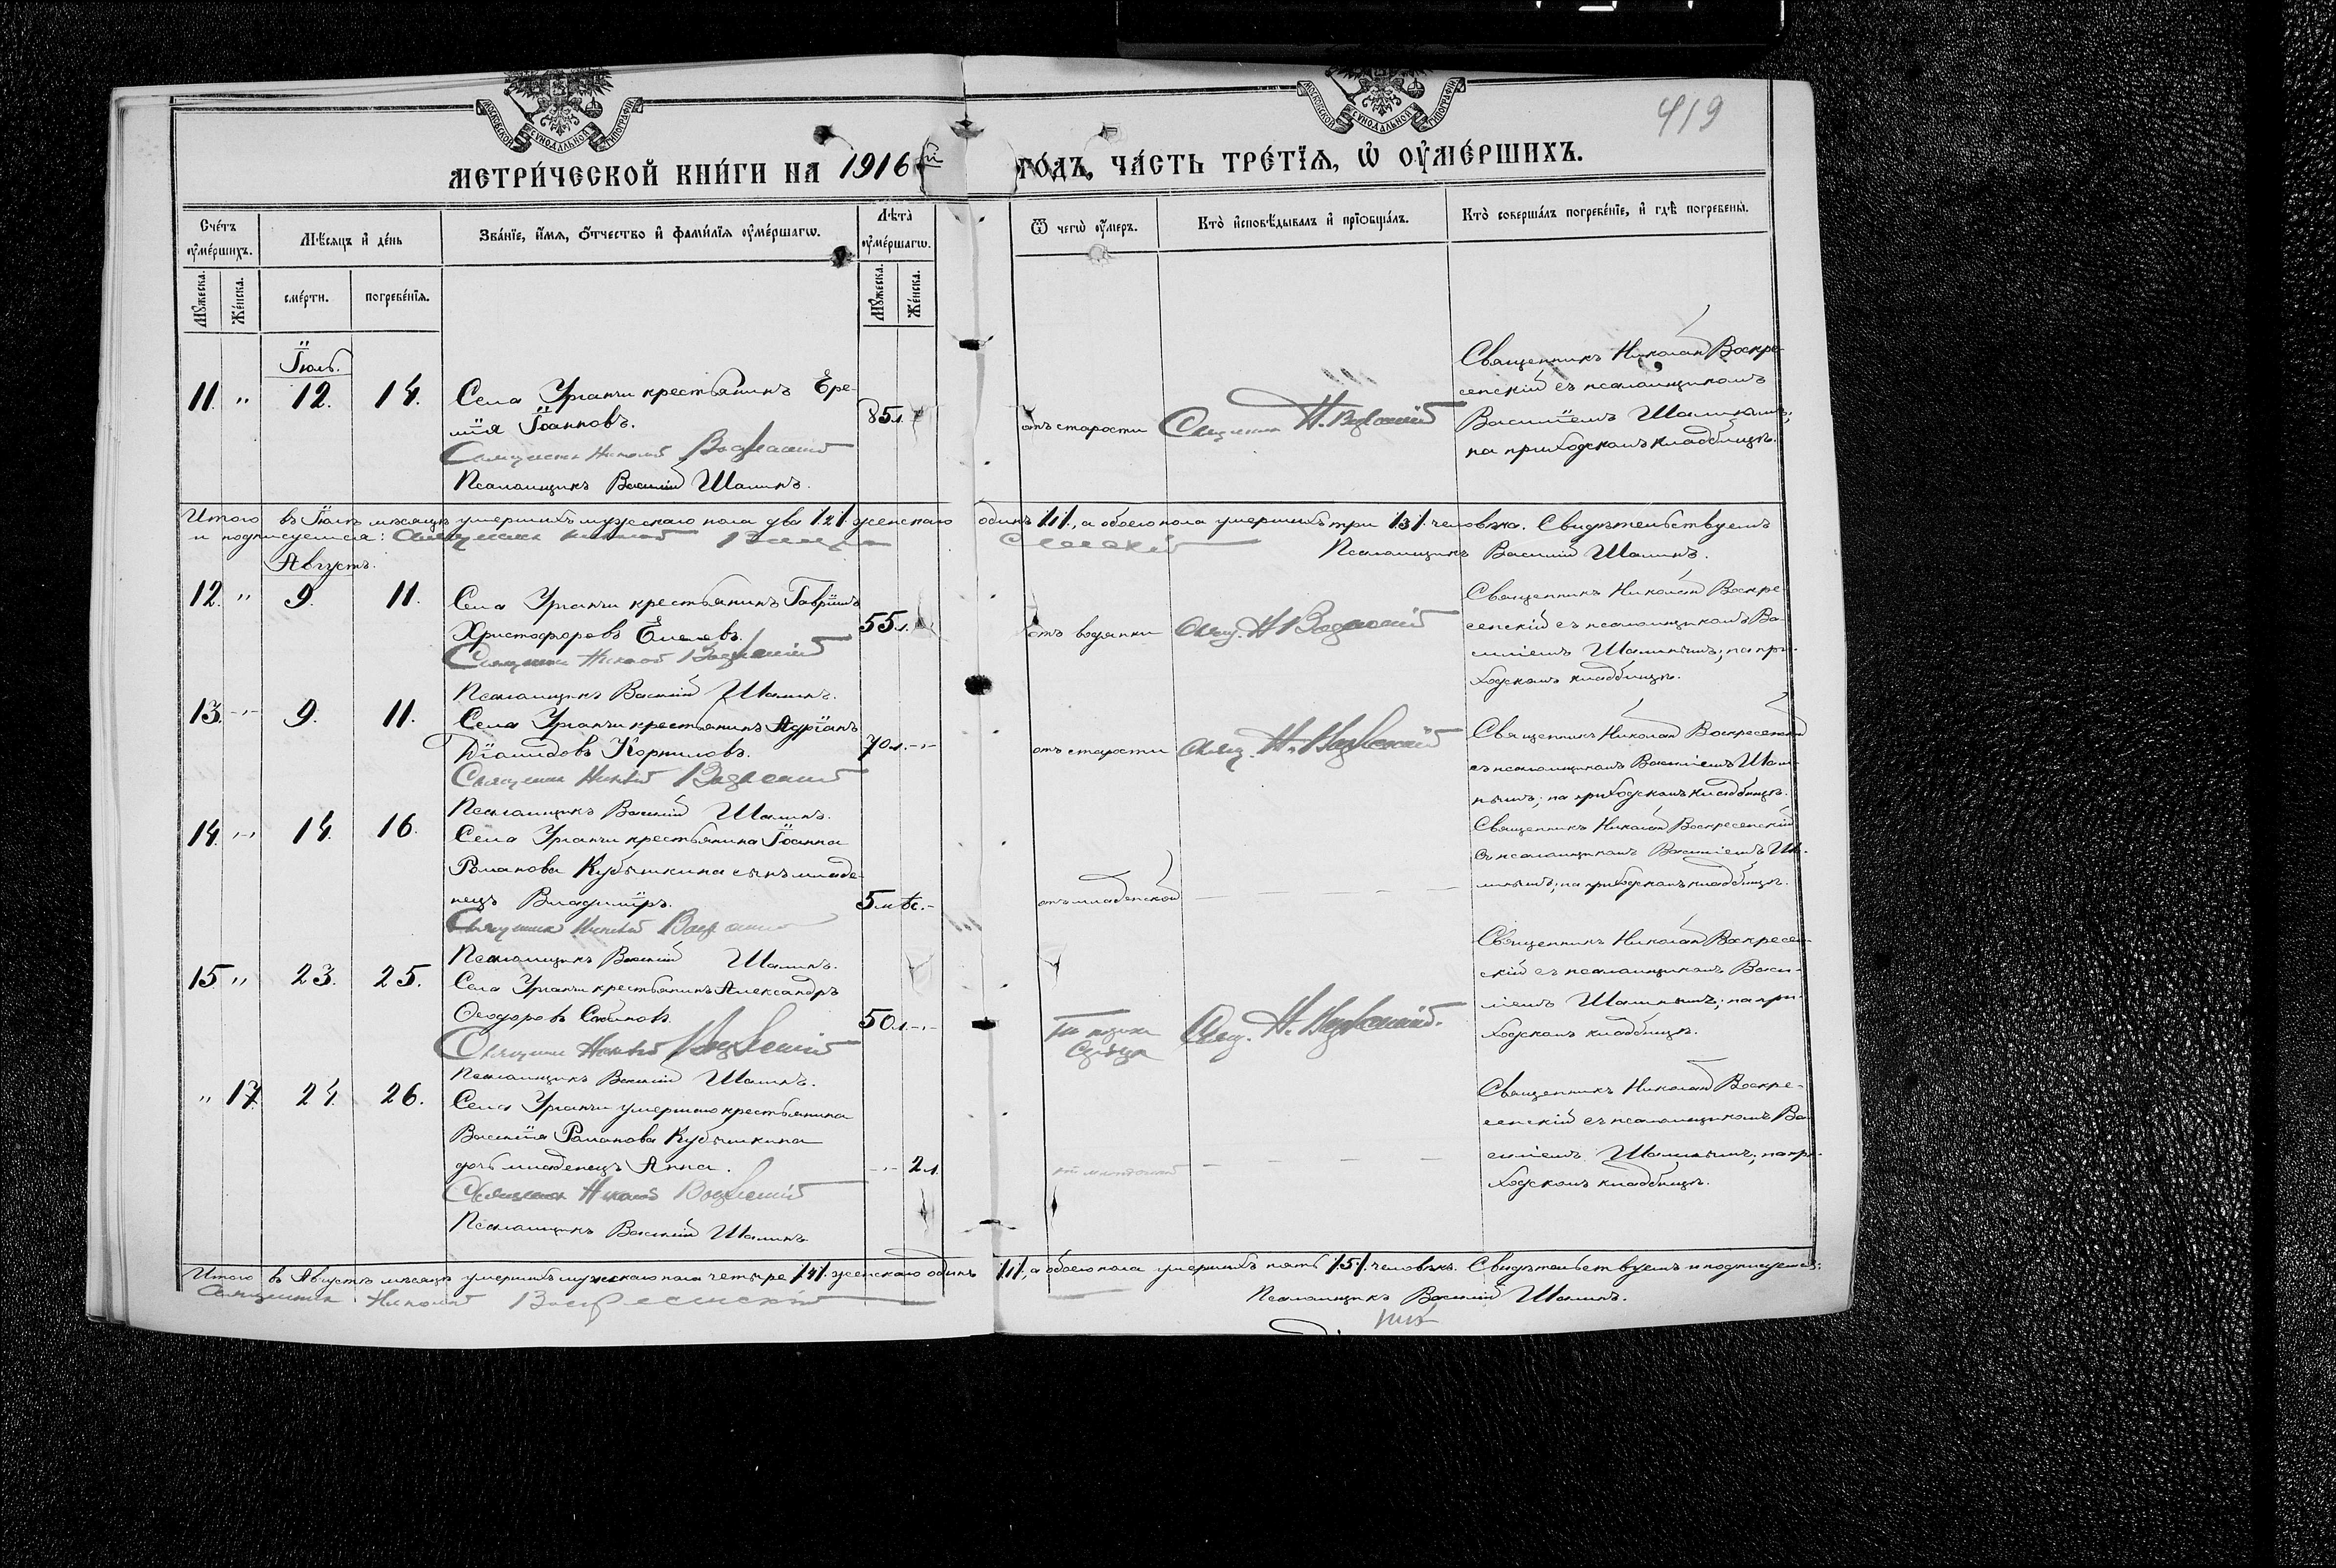 МОСКОВСКОЙ СѴНОДАЛЬНОЙ ТИПОГРАФІИ
МОСКОВСКОЙ СѴНОДАЛЬНОЙ ТИПОГРАФІИ
419
МЕТРИ́ЧЕСКОЙ КНИ́ГИ НА 1916й ГО́ДЪ, ЧА́СТЬ ТРЕ́ТЇѦ, Ѡ҆ ОУ҆МЕ́РШИХЪ.
Сче́тъ оумершихъ.
Мѣсѧцъ и де́нь
Зва́нїе, и҆́мѧ, ѻ҆́тчество и҆ фами́лїѧ оуме́ршагѡ.
Лѣта̀ оуме́ршагѡ.
Ѿ чегѡ̀ оу҆́меръ.
Кто̀ и҆сповѣ́дывалъ и҆ прїѡбща́лъ.
Кто̀ соверша́лъ погребе́нїе, и҆ гдѣ̀ погребены̀.
Мꙋ́жеска.
Же́нска.
сме́рти.
погребе́нїѧ.
Мꙋ́жеска.
Же́нска.
Іюль.
11. " 12. 14.
Села Урганчи крестьянинъ Ере-
мія Іоанновъ.
Священникъ Николай Воскресенскій
Псаломщикъ Василій Шалинъ.
85л.
отъ старости
Священникъ Н. Воскресенскій
Священникъ Николай Воскре-
сенскій съ псаломщикомъ
Василіемъ Шалинымъ;
на приходскомъ кладбищѣ.
Итого въ Іюлѣ мѣсяцѣ умершихъ мужскаго пола два /2/. женскаго одинъ /1/., а обоего пола умершихъ три /3/. человѣка. Свидѣтельствуемъ
и подписуемся: Священникъ Николай Воскресенскій
Псаломщикъ Василій Шалинъ.
Августъ.
12. " 9. 11.
Села Урганчи крестьянинъ Гавріилъ
Христофоровъ
Священникъ Николай Воскресенскій
Псаломщикъ Василій Шалинъ.
55л.
отъ водянки
Свящ. Н Воскресенскій
Священникъ Николай Воскре-
сенскій съ псаломщикомъ Ва-
силіемъ Шалинымъ; на при-
ходскомъ кладбищѣ.
13. -"- 9. 11.
Села Урганчи крестьянинъ Адріанъ
Діамидовъ Корниловъ.
Священникъ Николай Воскресенскій
Псаломщикъ Василій Шалинъ.
70л. -"-
отъ старости
Свящ. Н. Воскресенскій
Священникъ Николай Воскресенскій
съ псаломщикомъ Василіемъ Шали-
нымъ; на приходскомъ кладбищѣ.
14. -"- 14. 16.
Села Урганчи крестьянина Іоанна
Романова Кубышкина сынъ младе-
нецъ Владиміръ.
Священникъ Николай Воскресенскій
Псаломщикъ Василій Шалинъ.
5 мѣс. -
отъ младенской
Священникъ Николай Воскресенскій
съ псаломщикомъ Василіемъ Ша-
линымъ; на приходскомъ кладбищѣ.
15. " 23. 25.
Села Урганчи крестьянинъ Александръ
Ѳеодоровъ
Священникъ Николай Воскресенскій
Псаломщикъ Василій Шалинъ.
50л. -"-
сердца
Свящ. Н. Воскресенскій.
Священникъ Николай Воскресен-
скій съ псаломщикомъ Васи-
ліемъ Шалинымъ; на при-
ходскомъ кладбищѣ.
" 17. 24. 26.
Села Урганчи умершаго крестьянина
Василія Романова Кубышкина
дочь младенецъ Анна.
Священникъ Николай Воскресенскій
Псаломщикъ Василій Шалинъ
-"- 2л
Священникъ Николай Воскре-
сенскій съ псаломщикомъ Ва-
силіемъ Шалинымъ; на при-
ходскомъ кладбищѣ.
Итого въ Августѣ мѣсяцѣ умершихъ мужскаго пола четыре /4/. женскаго одинъ /1/., а обоего пола умершихъ пять /5/. человѣкъ. Свидѣтельствуемъ и подписуемся:
Священникъ Николай Воскресенскій
Псаломщикъ Василій Шалинъ.